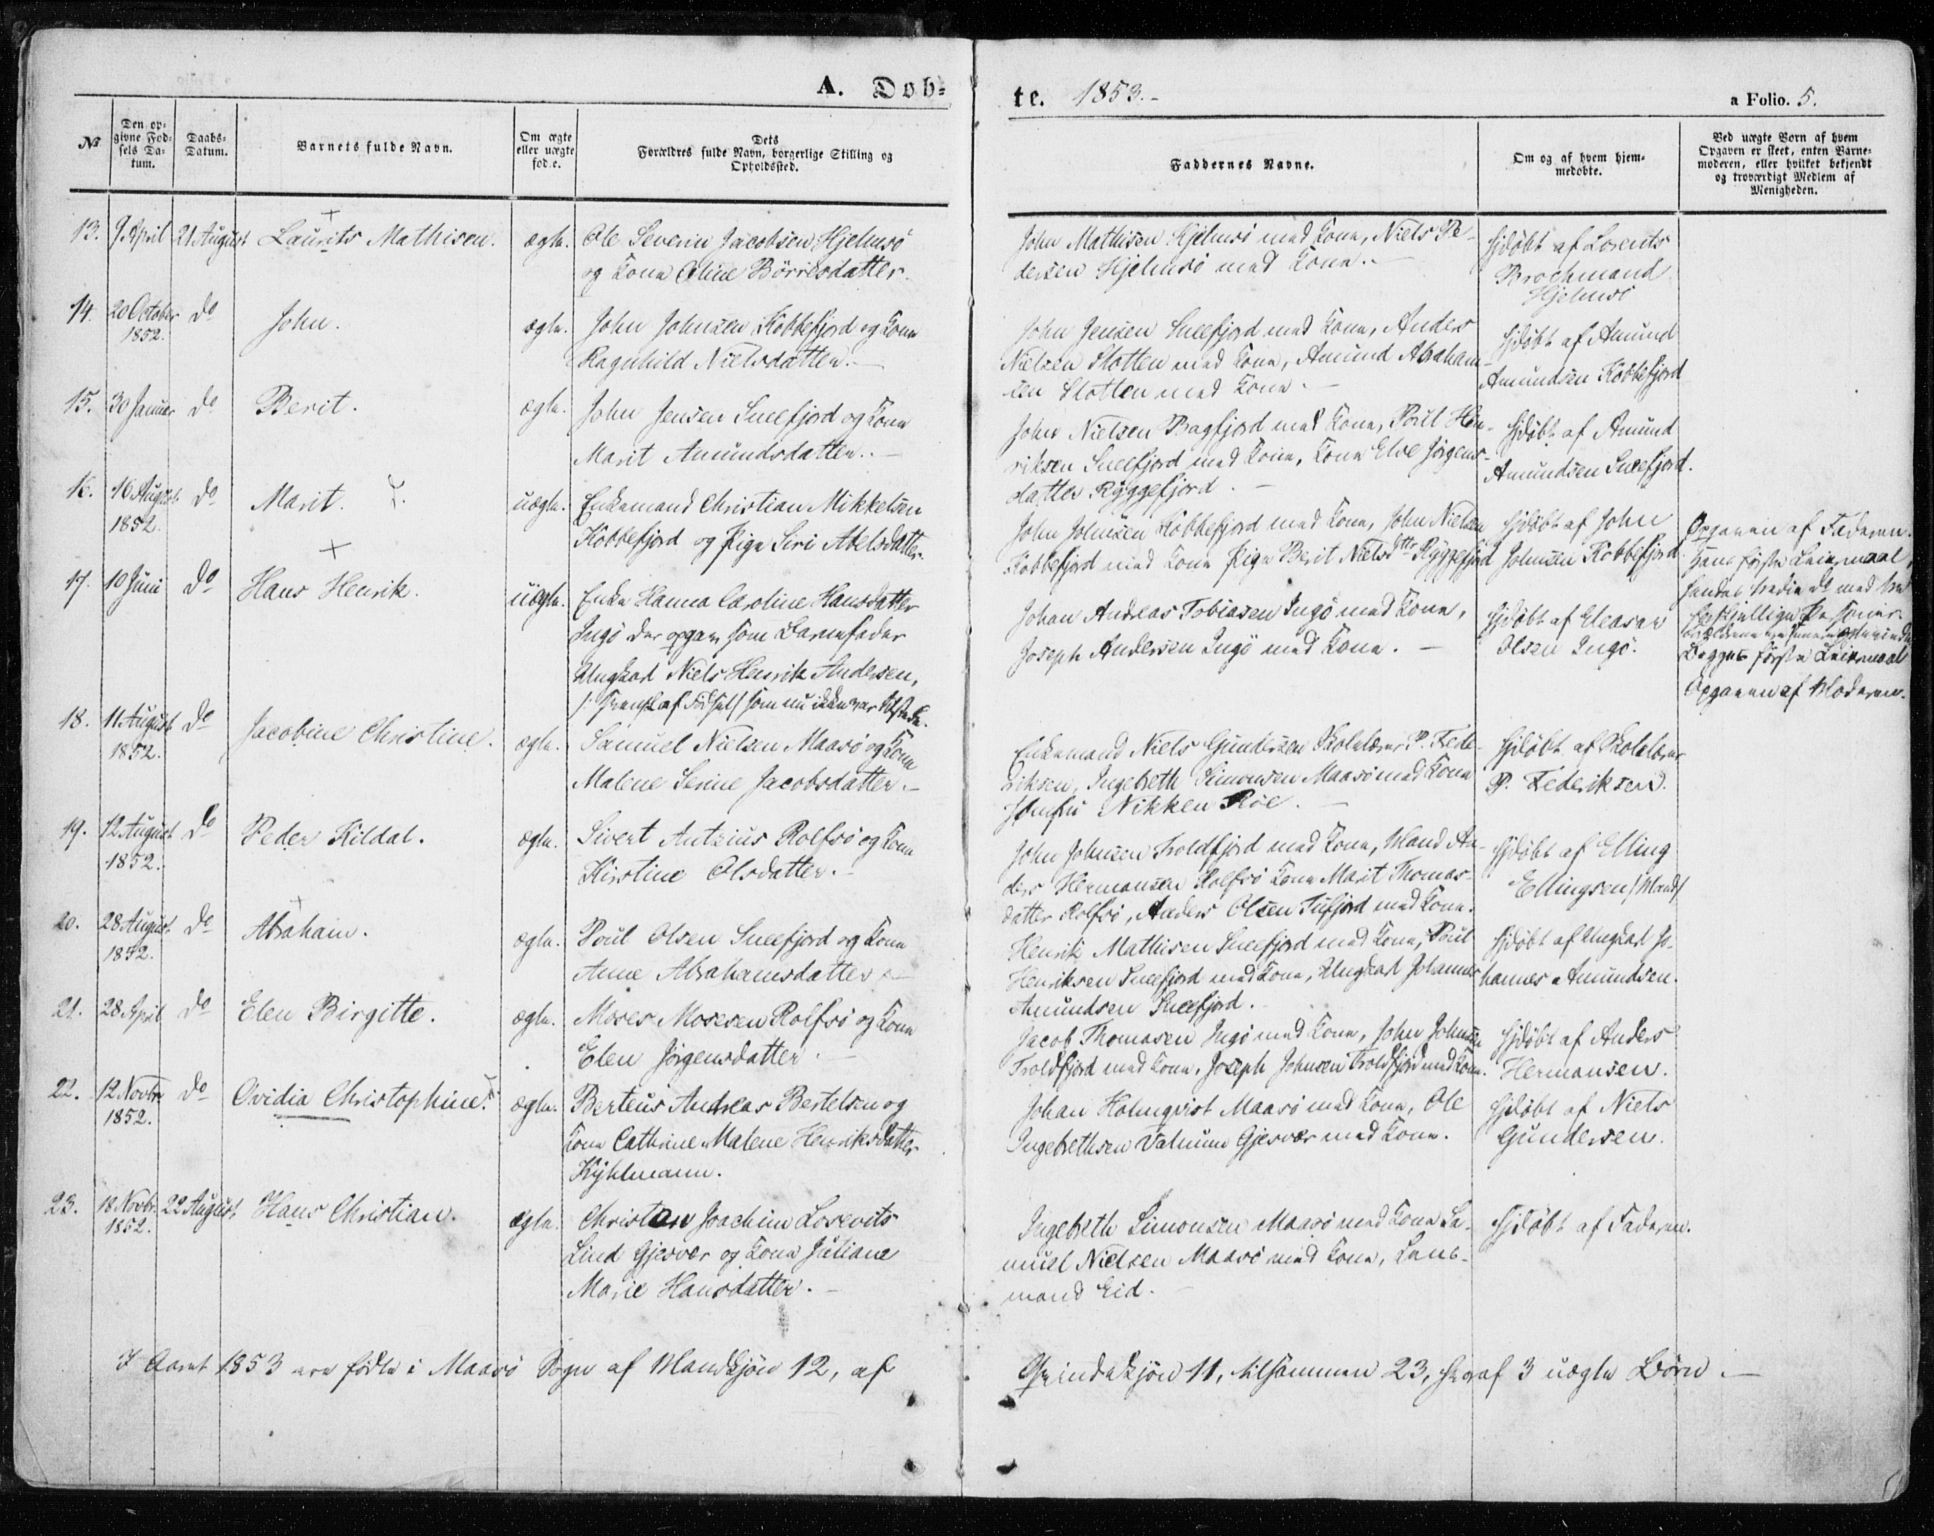 A. Døb=
te. 1853.-
a Folio. 5.
No
Den op-
givne Fød-
sels Da-
tum.
Daabs-
Datum.
Barnets fulde Navn.
Om ægte
eller uægte
fød.e.
Dets
Forældres fulde Navn, borgerlige Stilling og
Opholdssted.
Faddernes Navne.
Om og af hvem hjem-
medøbte.
Ved uægte Børn af hvem
Opgaven er skeet, enten Barne-
moderen, eller hvilket bekjendt
og troværdigt Medlem af
Menigheden.
13. 9 April 21 August Laurits Mathisen. ægte. Ole Severin Jacobsen Hjelmsö
og Kone Oline Börresdatter.
John Mathisen Hjelmsö med Kone, Niels Pe-
dersen Hjelmsö med Kone.
Hjdöbt af Lorents
Brochmand
Hjelmsö
14. 20 October
1852.
do John. ægte. John Johnsen Kobbefjord og Kone
Ragnhild Nielsdatter.
John Jensen Sneefjord med Kone, Anders
Nielsen Slotten med Kone, Amund Abraham-
sen Slotten med Kone.
Hjdöbt af Amund
Amundsen Kobbefjord
15. 30 Januar do Berit. ægte. John Jensen Sneefjord og Kone
Marit Amundsdatter.
John Nielsen Bagfjord med Kone, Poul Hen-
riksen Sneefjord med Kone, Kone Else Jörgens-
datter Ryggefjord.
Hjdöbt af Amund
Amundsen Sneefjord.
16. 16 August
1852.
do Marit. uægte. Enkemand Christian Mikkelsen
Kobbefjord og Pige Siri Abelsdatter
John Johnsen Kobbefjord med Kone, John Nielsen
Kobbefjord med Kone Pige Berit Nielsdtr Ryggefjord
Hjdöbt af John
Johnsen Kobbefjord
Opgaven af Faderen.
Hans første Leiermaal,
hendes tredie do med tre
forskjellige Personer.
17. 10 Juni do Hans Henrik. uægte. Enke Hanna Caroline Hansdatter
Ingö der opgav som Barnefader
Ungkarl Niels Henrik Andersen,
som nu ikke var tilstede.
Johan Andreas Tobiasen Ingö med Kone,
Joseph Andersen Ingö med Kone.
Hjdöbt af Eleasar
Olsen Ingö.
Begges første Leiermaal
Opgaven af Moderen.
18. 11 August
1852.
do Jacobine Christine. ægte. Samuel Nielsen Maasö og Kone
Malene Serine Jacobsdatter.
Enkemand Niels Gundersen Skolelærer P. Fede-
riksen, Ingebreth Simonsen Maasö med Kone
Jomfru Nikken Röe.
Hjdöbt af Skolelærer
P. Federiksen.
19. 12 August
1852.
do Peder Kildal. ægte. Sivert Antzius Rolfsö og Kone
Kirstine Olsdatter.
John Johnsen Troldfjord med Kone, Mand An-
ders Hermansen Rolfsö Kone Marit Thomas-
datter Rolfsö, Anders Olsen Tufjord med Kone.
Hjdöbt af Elling
Ellingsen /Mand/
20. 28 August.
1852.
do Abraham. ægte. Poul Olsen Sneefjord og Kone
Anne Abrahamsdatter
Henrik Mathisen Sneefjord med Kone, Poul
Henriksen Sneefjord med Kone, Ungkarl Johannes
Amundsen Sneefjord.
Hjdöbt af Ungkarl Jo-
hannes Amundsen.
21. 28 April do Elen Birgitte. ægte. Moses Mosesen Rolfsö og Kone
Elen Jörgensdatter.
Jacob Thomasen Ingö med Kone, John Johnsen
Troldfjord med Kone, Joseph Johnsen Troldfjord med Kone.
Hjdöbt af Anders
Hermansen.
22. 12 Novbr
1852.
do Ovidia Christophine. ægte. Berteus Andreas Bertelsen og
Kone Cathrine Malene Henriksdatter
Kyhlmann.
Johan Holmqvist Maasö med Kone, Ole
Ingebrethsen Valnum Gjesvær med Kone.
Hjdöbt af Niels
Gundersen.
23. 18 Novbr.
1852.
22 August. Hans Christian. ægte. Christan Joachim Lorents
Lind Gjesvær og Kone Juliane
Marie Hansdatter.
Ingebreth Simonsen Maasö med Kone Sa-
muel Nielsen Maasö med Kone, Lens-
mand Eid.
Hjdöbt af Faderen.
I Aaret 1853 ere fødte i Maasö Sogn af Mandkjön 12, af
Qvindekjön 11, tilsammen 23, hvoraf 3 uægte Börn.